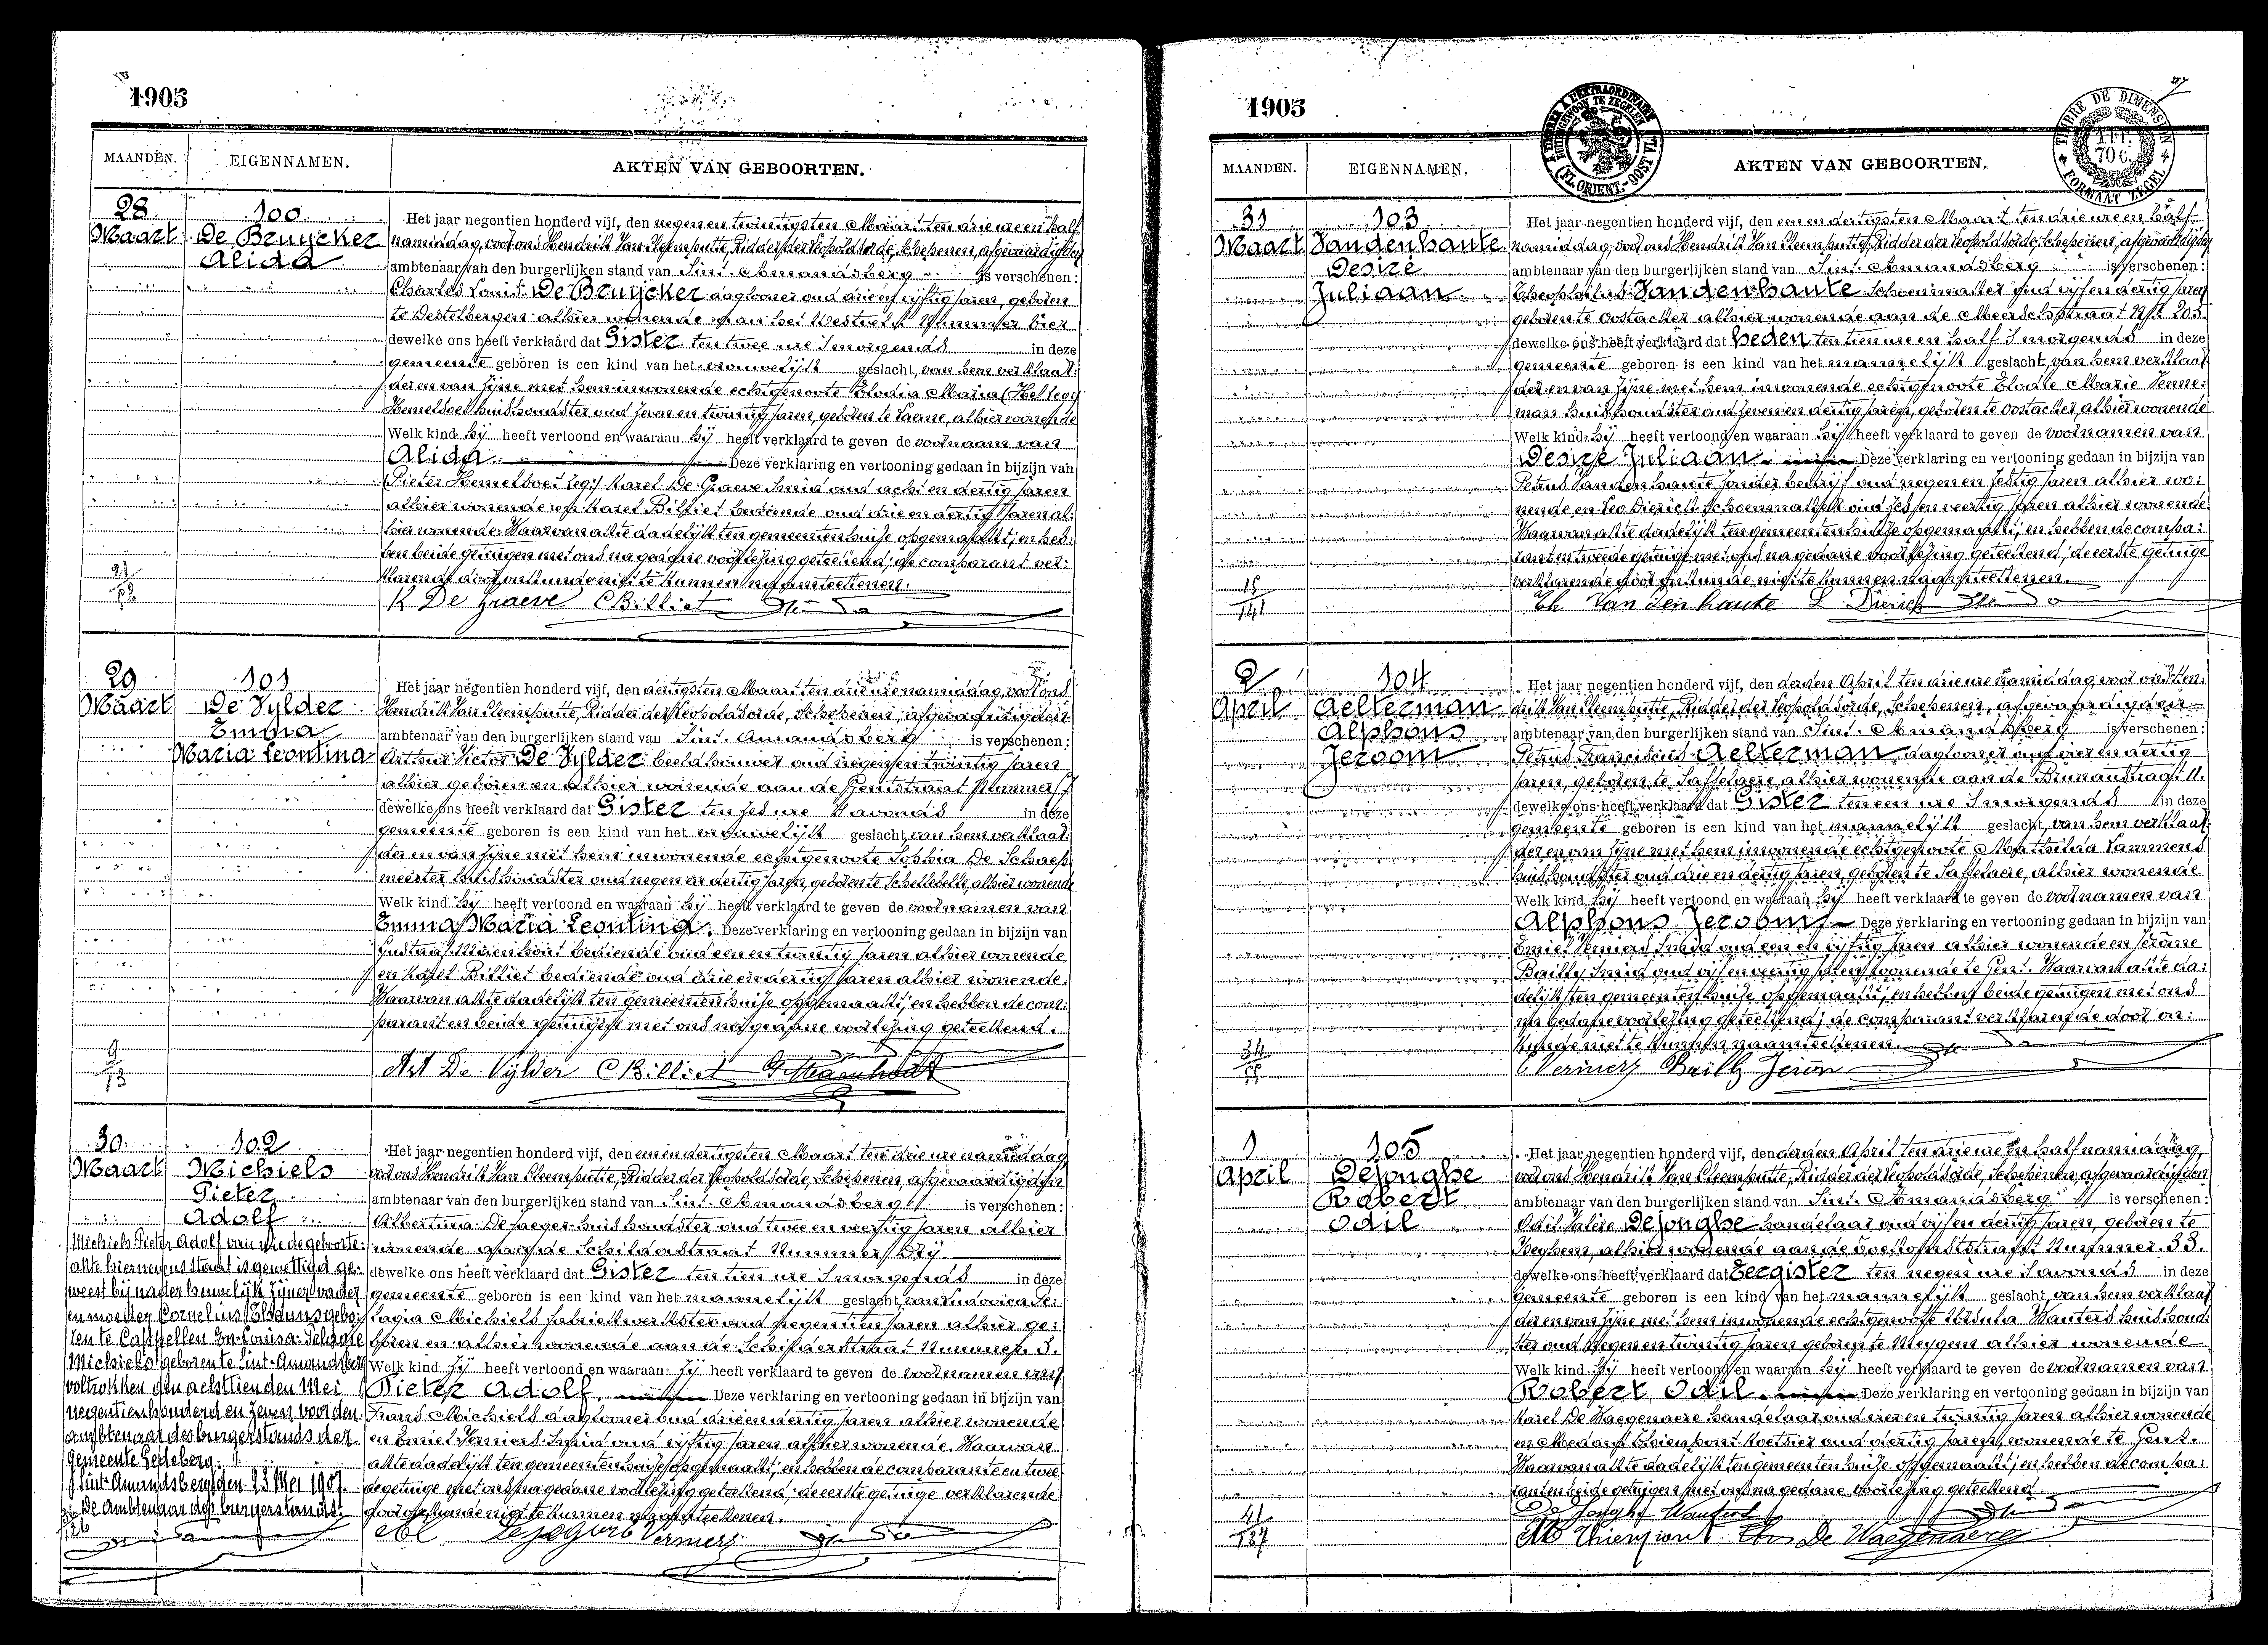 1905
MAANDEN. EIGENNAMEN. AKTEN VAN GEBOORTEN.
28 Maart
100
De Bruycker
Alida
Het jaar negentien honderd vijf, den negenentwintigsten Maart ten drie ure en half
namiddag, voor ons Hendrik Van Cleemputte, Ridder der Leopoldsorde, Schepenen, afgevaardigden
ambtenaar van den burgerlijken stand van Sint-Amandsberg is verschenen:
Charles Louis De Bruycker dagloner oud drie en vijftig jaren, geboren
te Destelbergen alhier wonende aan het Westveld Nummer vier
dewelke ons heeft verklaard dat Gister ten twee ure 's morgends in deze
gemeente geboren is een kind van het vrouwelijk geslacht, van hem verklaar:
der en van zijne met hem inwonende echtgenoote Elodia Maria (Hel legi
Hemelsoet huishoudster oud zeven en twintig jaren, geboren te Laerne, alhier wonende
Welk kind hij heeft vertoond en waaraan hij heeft verklaard te geven de voornaam van
Alida. Deze verklaring en vertooning gedaan in bijzijn van
(Pieter Hemelsoet legi) Karel De Graeve Smid oud acht en dertig jaren
alhier wonende en Karel Billiet bediende oud drie en dertig jaren al:
hier wonende. Waarvan akte dadelijk ten gemeentenhuize opgemaakt; en heb:
ben beide getuigen met ons na gedane voorlezing geteekend; de comparant ver:
klarende door onkunde niet te kunnen naamteekenen.
K De Graeve CBilliet
29 Maart
101
De Vylder
Emma
Maria Leontina
Het jaar negentien honderd vijf, den dertigsten Maart ten drie ure namiddag, voor ons
Hendrik Van Cleemputte, Ridder der Leopoldsorde, Schepenen, afgevaardigden
ambtenaar van den burgerlijken stand van Sint-Amandsberg is verschenen:
Arthur Victor De Vylder beeldhouwer oud negen en twintig jaren
alhier geboren en alhier wonende aan de Gentstraat Nummer 7
dewelke ons heeft verklaard dat Gister ten zes ure 's avonds in deze
gemeente geboren is een kind van het vrouwelijk geslacht, van hem verklaar:
der en van zijne met hem inwonende echtgenoote Sophia De Schaep:
meester huishoudster oud negen en dertig jaren, geboren te Schellebelle, alhier wonende
Welk kind hij heeft vertoond en waaraan hij heeft verklaard te geven de voornamen van
Emma Maria Leontina. Deze verklaring en vertooning gedaan in bijzijn van
Gustaaf Maenhout bediende oud een en twintig jaren alhier wonende
en Karel Billiet bediende oud drie en dertig jaren alhier wonende.
Waarvan akte dadelijk ten gemeentenhuize opgemaakt; en hebben de com:
parant en beide getuigen met ons na gedane voorlezing geteekend.
9
13
Art De Vylder CBilliet G Maenhout
30 Maart
102
Michiels
Pieter
Adolf
Michiels Pieter Adolf van wie de geboorte:
akte hiernevens staat is gewettigd ge:
weest bij nader huwelijk zijner vader
en moeder Cornelius
ten te Capellen En Louisa Pelagie
Michiels geboren te Sint-Amandsberg
voltrokken den achttienden Mei
negentienhonderd en zeven voor den
ambtenaar des burgerstands der
gemeente Gedeberg.
Sint-Amandsberg den 23 Mei 1907.
De Ambtenaar des burgerstands.
Het jaar negentien honderd vijf, den eenen dertigsten Maart ten drie ure namiddag
voor ons Hendrik Van Cleemputte, Ridder der Leopoldsorde, Schepenen, afgevaardigden
ambtenaar van den burgerlijken stand van Sint-Amandsberg is verschenen:
Albertina De Jaeger huishoudster oud twee en veertig jaren alhier
wonende aan de Schilderstraat Nummer Drij
dewelke ons heeft verklaard dat Gister ten tien ure 's morgends in deze
gemeente geboren is een kind van het mannelijk geslacht, van Ludovica Pe:
lagia Michiels fabriekwerkster oud negentien jaren alhier ge:
boren en alhier wonende aan de Schilderstraat Nummer 3.
Welk kind zij heeft vertoond en waaraan zij heeft verklaard te geven de voornamen van
Pieter Adolf. Deze verklaring en vertooning gedaan in bijzijn van
Frans Michiels dagloner oud drie en dertig jaren alhier wonende
en Emiel Verniers Smid oud vijftig jaren alhier wonende. Waarvan
akte dadelijk ten gemeentenhuize opgemaakt; en hebben de comparante en twee:
de getuige met ons na gedane voorlezing geteekend; de eerste getuige verklarende
door onkunde niet te kunnen naamteekenen.
Verniers
1905
MAANDEN. EIGENNAMEN. AKTEN VAN GEBOORTEN.
A TIMBRER A L'EXTRAORDINAIRE
BUITENGEWOON TE ZEGELEN
(FL. ORIENT.-OOST VL.)
TIMBRE DE DIMENSION
1 FR.
70 C.
FORMAAT ZEGEL
31 Maart
103
Vandenhaute
Desiré
Juliaan
Het jaar negentien honderd vijf, den eenen dertigsten Maart ten drie ure en half
namiddag, voor ons Hendrik Van Cleemputte, Ridder der Leopoldsorde, Schepenen, afgevaardigden
ambtenaar van den burgerlijken stand van Sint-Amandsberg is verschenen:
Theophilus Vandenhaute Schoenmaker oud vijf en dertig jaren
geboren te Oostacker alhier wonende aan de Meerschstraat Nr 203.
dewelke ons heeft verklaard dat heden ten tien ure en half 's morgends in deze
gemeente geboren is een kind van het mannelijk geslacht, van hem verklaar:
der en van zijne met hem inwonende echtgenoote Elodie Marie Venne:
man huishoudster oud zeven en dertig jaren, geboren te Oostacker, alhier wonende
Welk kind hij heeft vertoond en waaraan hij heeft verklaard te geven de voornamen van
Desiré Juliaan. Deze verklaring en vertooning gedaan in bijzijn van
Petrus Vandenhaute zonder bedrijf oud negen en zestig jaren alhier wo:
nende en Leo Dierick schoenmaker oud zes en veertig jaren alhier wonende
Waarvan akte dadelijk ten gemeentenhuize opgemaakt; en hebben de compa:
rant en tweede getuige met ons na gedane voorlezing geteekend; de eerste getuige
verklarende door onkunde niet te kunnen naamteekenen.
15
141
Th Van den haute L Dierick
2 April
104
Aelterman
Alphons
Jeroom
Het jaar negentien honderd vijf, den derden April ten drie ure namiddag, voor ons Hen:
drik Van Cleemputte, Ridder der Leopoldsorde, Schepenen, afgevaardigden
ambtenaar van den burgerlijken stand van Sint-Amandsberg is verschenen:
Petrus Franciscus Aelterman dagloner oud vier en dertig
jaren, geboren te Saffelaere alhier wonende aan de Brunaustraat 11.
dewelke ons heeft verklaard dat Gister ten een ure 's morgends in deze
gemeente geboren is een kind van het mannelijk geslacht, van hem verklaar:
der en van zijne met hem inwonende echtgenoote Mathilda Lammens
huishoudster oud drie en dertig jaren, geboren te Saffelaere, alhier wonende
Welk kind hij heeft vertoond en waaraan hij heeft verklaard te geven de voornamen van
Alphons Jeroom Deze verklaring en vertooning gedaan in bijzijn van
Emiel Verniers Smid oud een en vijftig jaren alhier wonende en Jérôme
Bailly Smid oud vijf en veertig jaren wonende te Gent. Waarvan akte da:
delijk ten gemeentenhuize opgemaakt; en hebben beide getuigen met ons
na gedane voorlezing geteekend; de comparant verklarende door on:
kunde niet te kunnen naamteekenen.
34
55
Verniers Bailly Jérôm
1 April
105
Dejonghe
Robert
Odil
Het jaar negentien honderd vijf, den derden April ten drie ure en half namiddag,
voor ons Hendrik Van Cleemputte, Ridder der Leopoldsorde, Schepenen, afgevaardigden
ambtenaar van den burgerlijken stand van Sint-Amandsberg is verschenen:
Odil Valère Dejonghe handelaar oud vijf en dertig jaren, geboren te
Keyhem, alhier wonende aan de Toekomststraat Nummer 33.
dewelke ons heeft verklaard dat Eergister ten negen ure 's avonds in deze
gemeente geboren is een kind van het mannelijk geslacht, van hem verklaar:
der en van zijne met hem inwonende echtgenoote Ursula Wauters huishoud:
ster oud negen en twintig jaren geboren te Meygem alhier wonende
Welk kind hij heeft vertoond en waaraan hij heeft verklaard te geven de voornamen van
Robert Odil. Deze verklaring en vertooning gedaan in bijzijn van
Karel De Waegenaere handelaar oud vier en twintig jaren alhier wonende
en Medard Thienpont Koetsier oud dertig jaren, wonende te Gent.
Waarvan akte dadelijk ten gemeentenhuize opgemaakt; en hebben de compa:
rant en beide getuigen met ons na gedane voorlezing geteekend
41
187
De Jonghe Wauters
Thienpont De Waegenaere